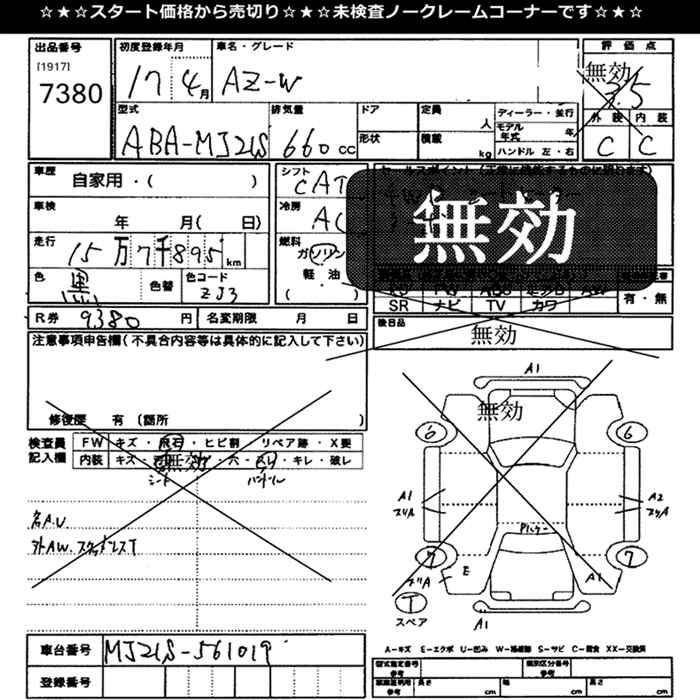 ☆★☆スタート価格から売切り☆★☆未検査ノークレームコーナーです☆★☆
出品番号 初度登録年月 車名・グレード 評価点
[1917]
7380 17 4月 AZ-W 無効 3.5
型式 排気量 ドア 定員 人 ディーラー・並行 外装 内装
ABA-MJ21S 660cc 形状 積載 kg モデル年式 年 C C
ハンドル 左・右
車歴 自家用・( ) シフト CAT セールスポイント
車検 年 月( 日) 冷房 AC 無効
走行 15万7千895km 燃料 ガソリン
色 黒 色替 色コード ZJ3 軽油 ( )
SR ナビ TV カワ 有・無
R券 9380円 名変期限 月 日 後日品 無効
注意事項申告欄(不具合内容等は具体的に記入して下さい)
修復歴 有 (箇所
検査員 FW キズ・飛石・ヒビ割 リペア跡・X要
記入欄 内装 キズ・無効・穴・スレ・キレ・破レ
シート ハンドル
外AW.
A1
無効
6 6
A1 A2
7 7
E A1
T
スペア A1
車台番号 MJ21S-561019
登録番号
A-キズ E-エクボ U-凹み W-補修跡 S-サビ C-腐食 XX-交換済
型式指定番号 参考 類別区分番号 参考
参考 長さ cm 幅 cm 高さ cm